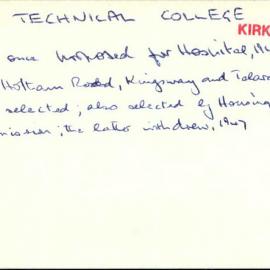 TECHNICAL COLLEGE
KIRK
once proposed for Hospital,
Hotham Road, Kingsway and
selected; also selected by Housing
; the latter withdrew, 1947